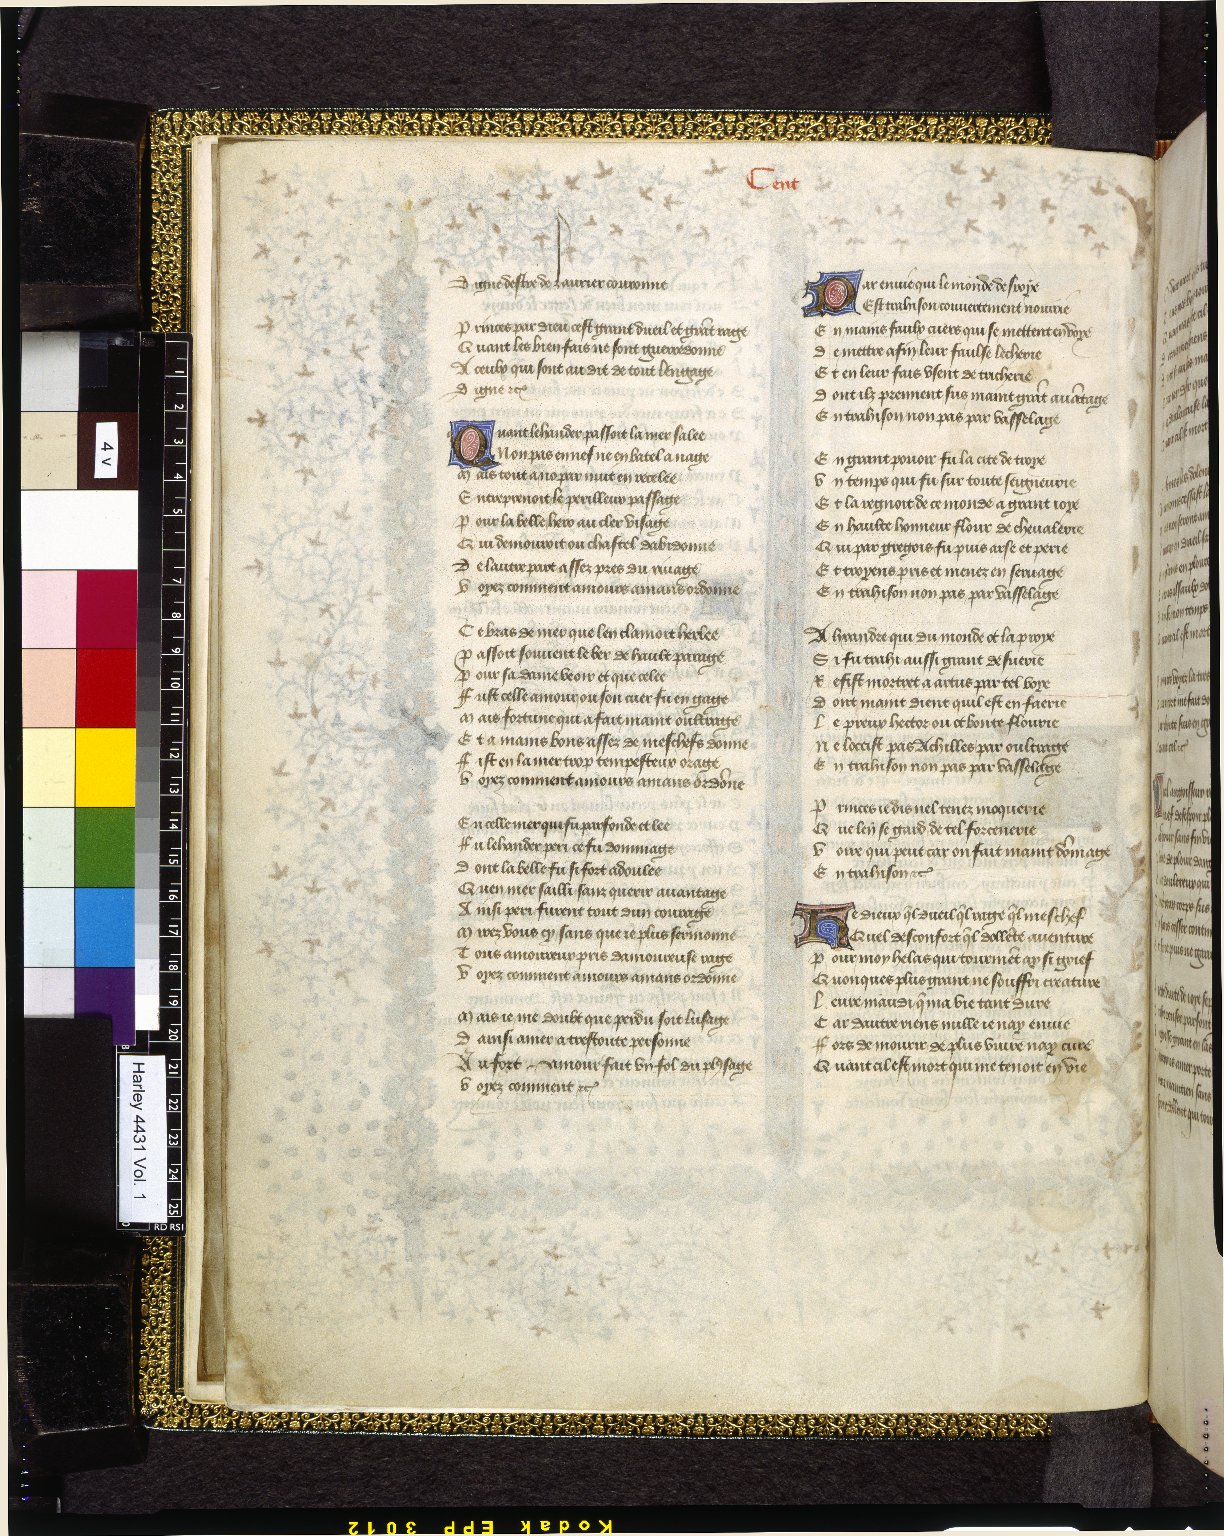 Cent
Digne destre de laurier couronne
Princes par dieu cest grant dueil et grāt rage
Quant les bien fais ne sont guerredonne
A ceulx qui sont au dit de tout lengage
Digne &c
Quant lehander passoit la mer salee
Non pas en nef ne en batel a nage
Mais tout a no par nuit en recelee
Entreprenoit le perilleux passage
Pour la belle hero au cler visage
Qui demouroit ou chastel dabidonne
De lautre part assez pres du rivage
Voyez comment amours amans ordonne
Ce bras de mer que len clamoit hellee
Passoit souvent le ber de hault parage
Pour sa dame veoir et que celee
Fust celle amour ou son cuer fu en gage
Mais fortune qui a fait maint oultrage
Et a mains bons assez de meschefs donne
Fist en la mer trop tempesteux orage
Voyez comment amours amans ordōne
En celle mer qui fu parfonde et lee
Fu lehander peri ce fu dommage
Dont la belle fu si fort adoulee
Quen mer sailli sanz querir avantage
Ainsi peri furent tout dun courage
Mirez vous cy sans que ie plus sermonne
Tous amoureux pris damoureuse rage
Voyez comment amours amans ordonne
Mais ie me doubt que perdu soit lusage
Dainsi amer a trestoute personne
Au fort amour fait un fol du pl9 sage
Voyez comment &c
Par envie qui le monde desvoye
Est trahison couvertement nourrie
En mains faulx cuers qui se mettent en voye
De mettre a fin leur faulse lecherie
Et en leur fais usent de tricherie
Dont ilz prennent sus maint grāt avātage
En trahison non pas par vasselage
En grant pouoir fu la cite de troye
Un temps qui fu sur toute seigneurie
Et la regnoit de ce monde a grant ioye
En haulte honneur flour de chevalerie
Qui par gregois fu puis arse et perie
Et troyens pris et menez en servage
En trahison non pas par vasselage
Alixandre qui du monde ot la proye
Si fu trahi aussi grant desverie
Refist mortret a artus par tel voye
Dont maint dient quil est en faerie
Le preux hector ou ot bonte flourie
Ne loccist pas Achilles par oultrage
En trahison non pas par vasselage
Princes ie dis nel tenez moquerie
Que len se gard de tel forcenerie
Voire qui peut car on fait maint dōmage
En trahison &c
He dieux q̄l dueil q̄l rage q̄l meschef
Quel desconfort q̄l dolētē aventure
Pour moy helas qui tourmēt ay si grief
Quonques plus grant ne souffri creature
Leure maudi q̄ ma vie tant dure
Car dautre riens nulle ie nay envie
Fors de mourir de plus vivre nay cure
Quant cil est mort qui me tenoit en vie
4 v
Harley 4431 Vol. 1
Kodak EPP 3012